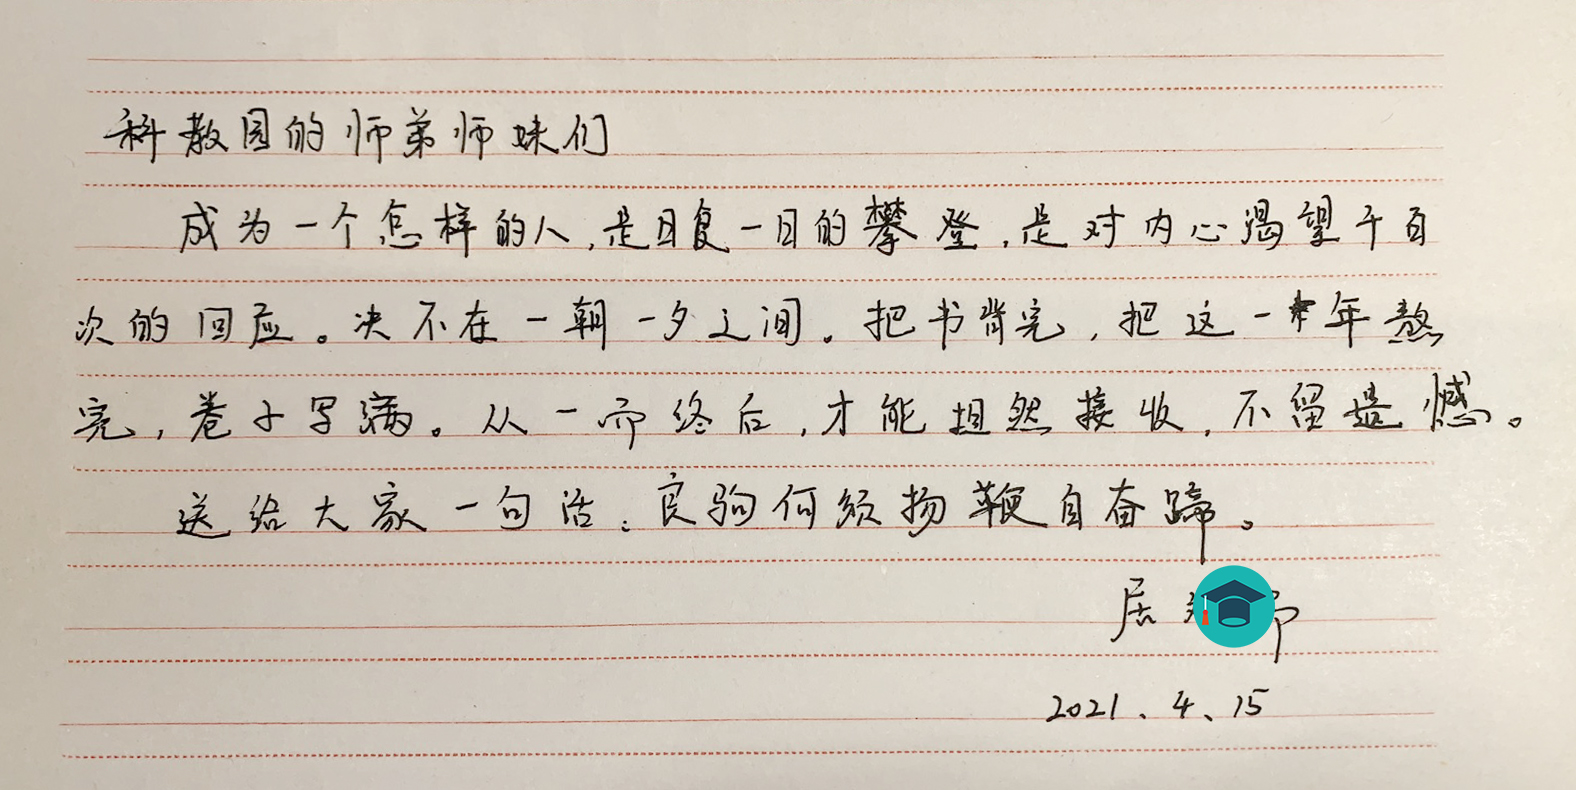 科教园的师弟师妹们
成为一个怎样的人,是日复一日的攀登,是对内心渴望千百
次的回应。决不在一朝一夕之间。把书背完,把这一年熬
完,卷子写满。从一而终后,才能坦然接收,不留遗憾。
送给大家一句话:良驹何须扬鞭自奋蹄。
居
2021、4、15